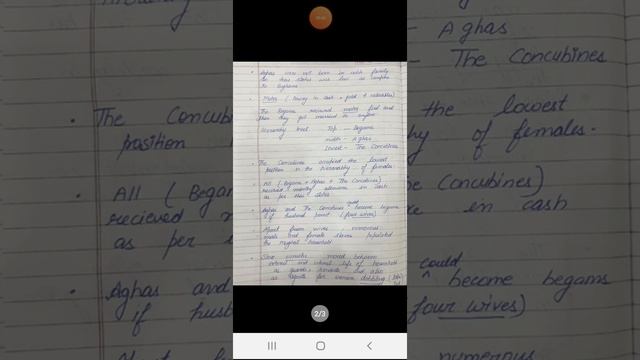 Aghas were not born in rich family
so thus status was low as compare
to begams
Meher (Money in cash + gold + valuables)
The Begams recieved meher first and
then they got married in
Hierarchy level Top — Begams
Middle — Aghas
Lowest — The Concubines
The Concubines occupied the lowest
position in the hierarchy of females.
All (Begams + Aghas + The Concubines)
recieved monthly allowance in cash
as per their status
Aghas and The Concubines could become begams
if husband permit (four wives)
Apart from wives, numerous
male and female slaves populated
the Mughal household
Slave eunuchs moved between
external and internal life of household
as guards, servants and also
as agents for women dabbling
2/3
- Aghas
- The Concubines
The Concub
position
the lowest
y of females.
All (Began
recieved
as per
e Concubines)
ce in cash
Aghas and
if husb
could
become begams
four wives)
numerous